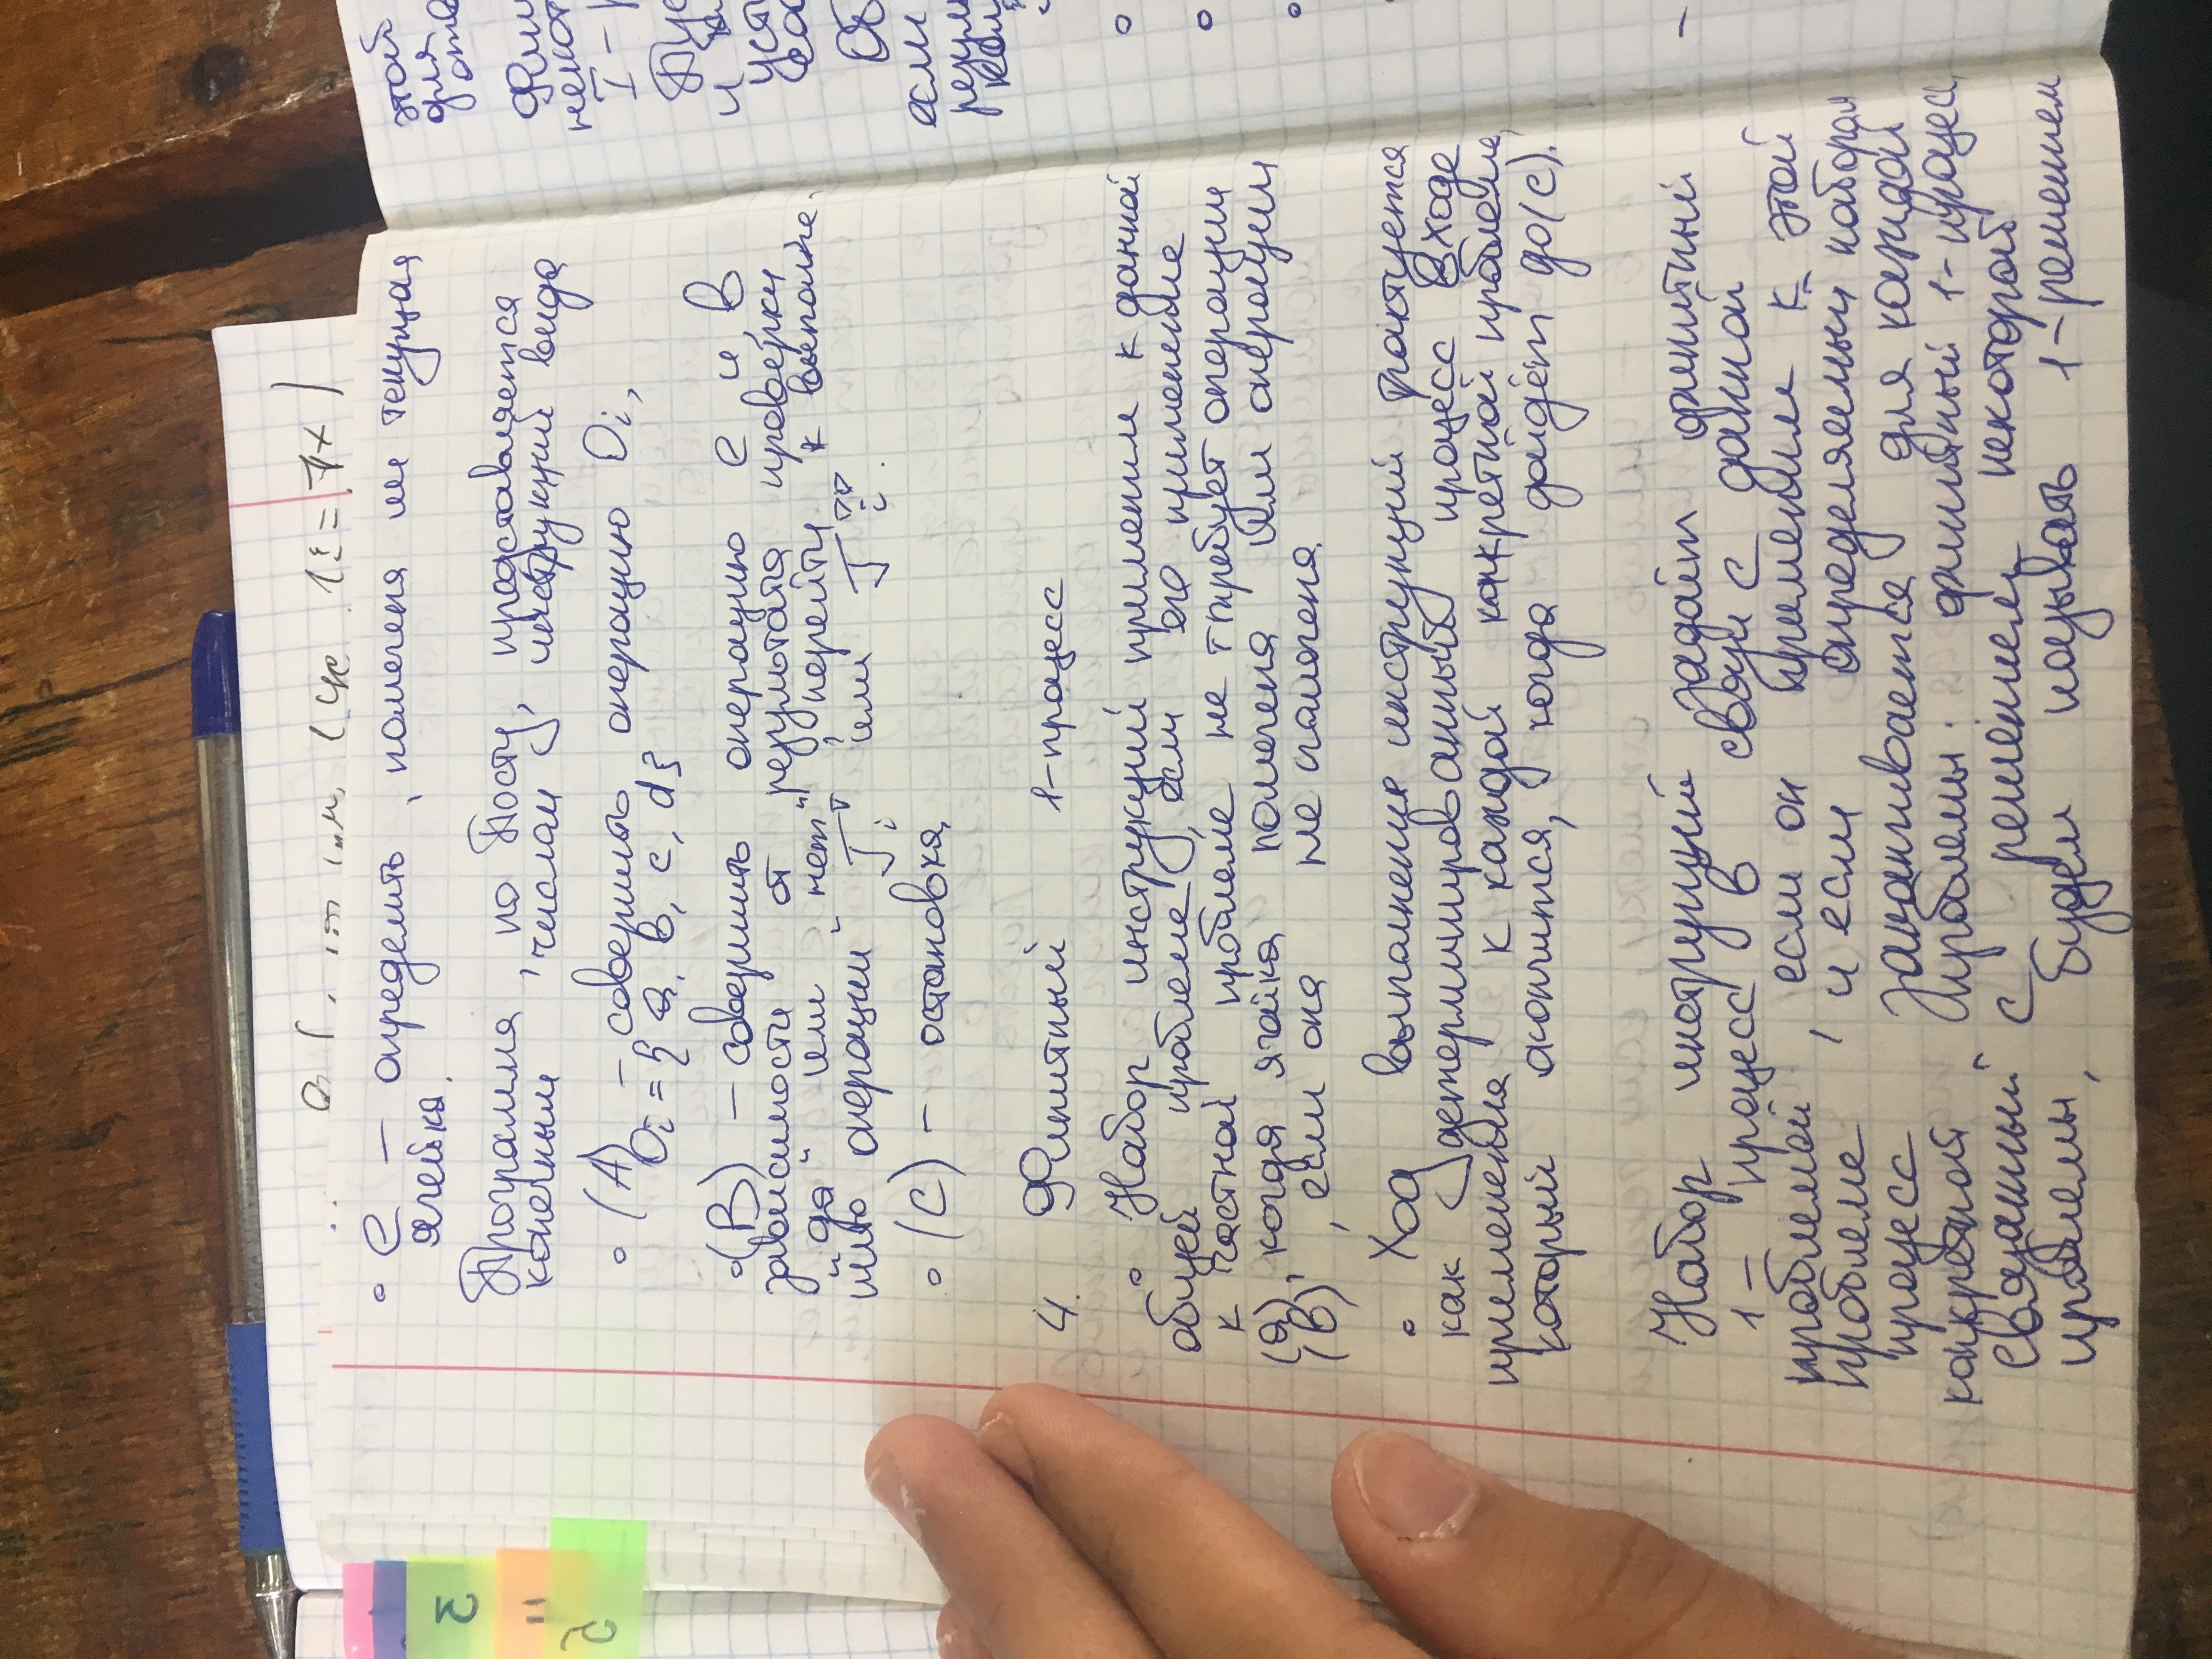 3
11
5
1i = 7x )
◦ e – определить, помечена ли текущая
ячейка.
Программа, по Посту, представляется
конечным числом инструкций вида
◦ (A) – совершить операцию Oi,
Oi = { a, b, c, d }
◦ (B) – совершить операцию e и, в
зависимости от результата проверки
"да" или "нет", перейти к выполне-
нию операции Ji' или Ji''.
◦ (C) – остановка
4. Финитный 1-процесс
◦ Набор инструкций применим к данной
общей проблеме, если его применение
к частной проблеме не требует операции
(a), когда ячейка помечена или операции
(b), если она не помечена
◦ Ход выполнения инструкций трактуется
как детерминированный процесс в ходе
применения к каждой конкретной проблеме,
который окончится, когда дойдёт до (C).
Набор инструкций задаёт финитный
1 – процесс в связи с данной
проблемой, если он применим к этой
проблеме и если определяемый набором
процесс заканчивается для каждой
конкретной проблемы. финитный 1-процесс,
связанный с решением некоторой
проблемы, будем называть 1-решением
этой
для
отв
Фин
некот
I –
Пус
и к
уст
Об
если
резул